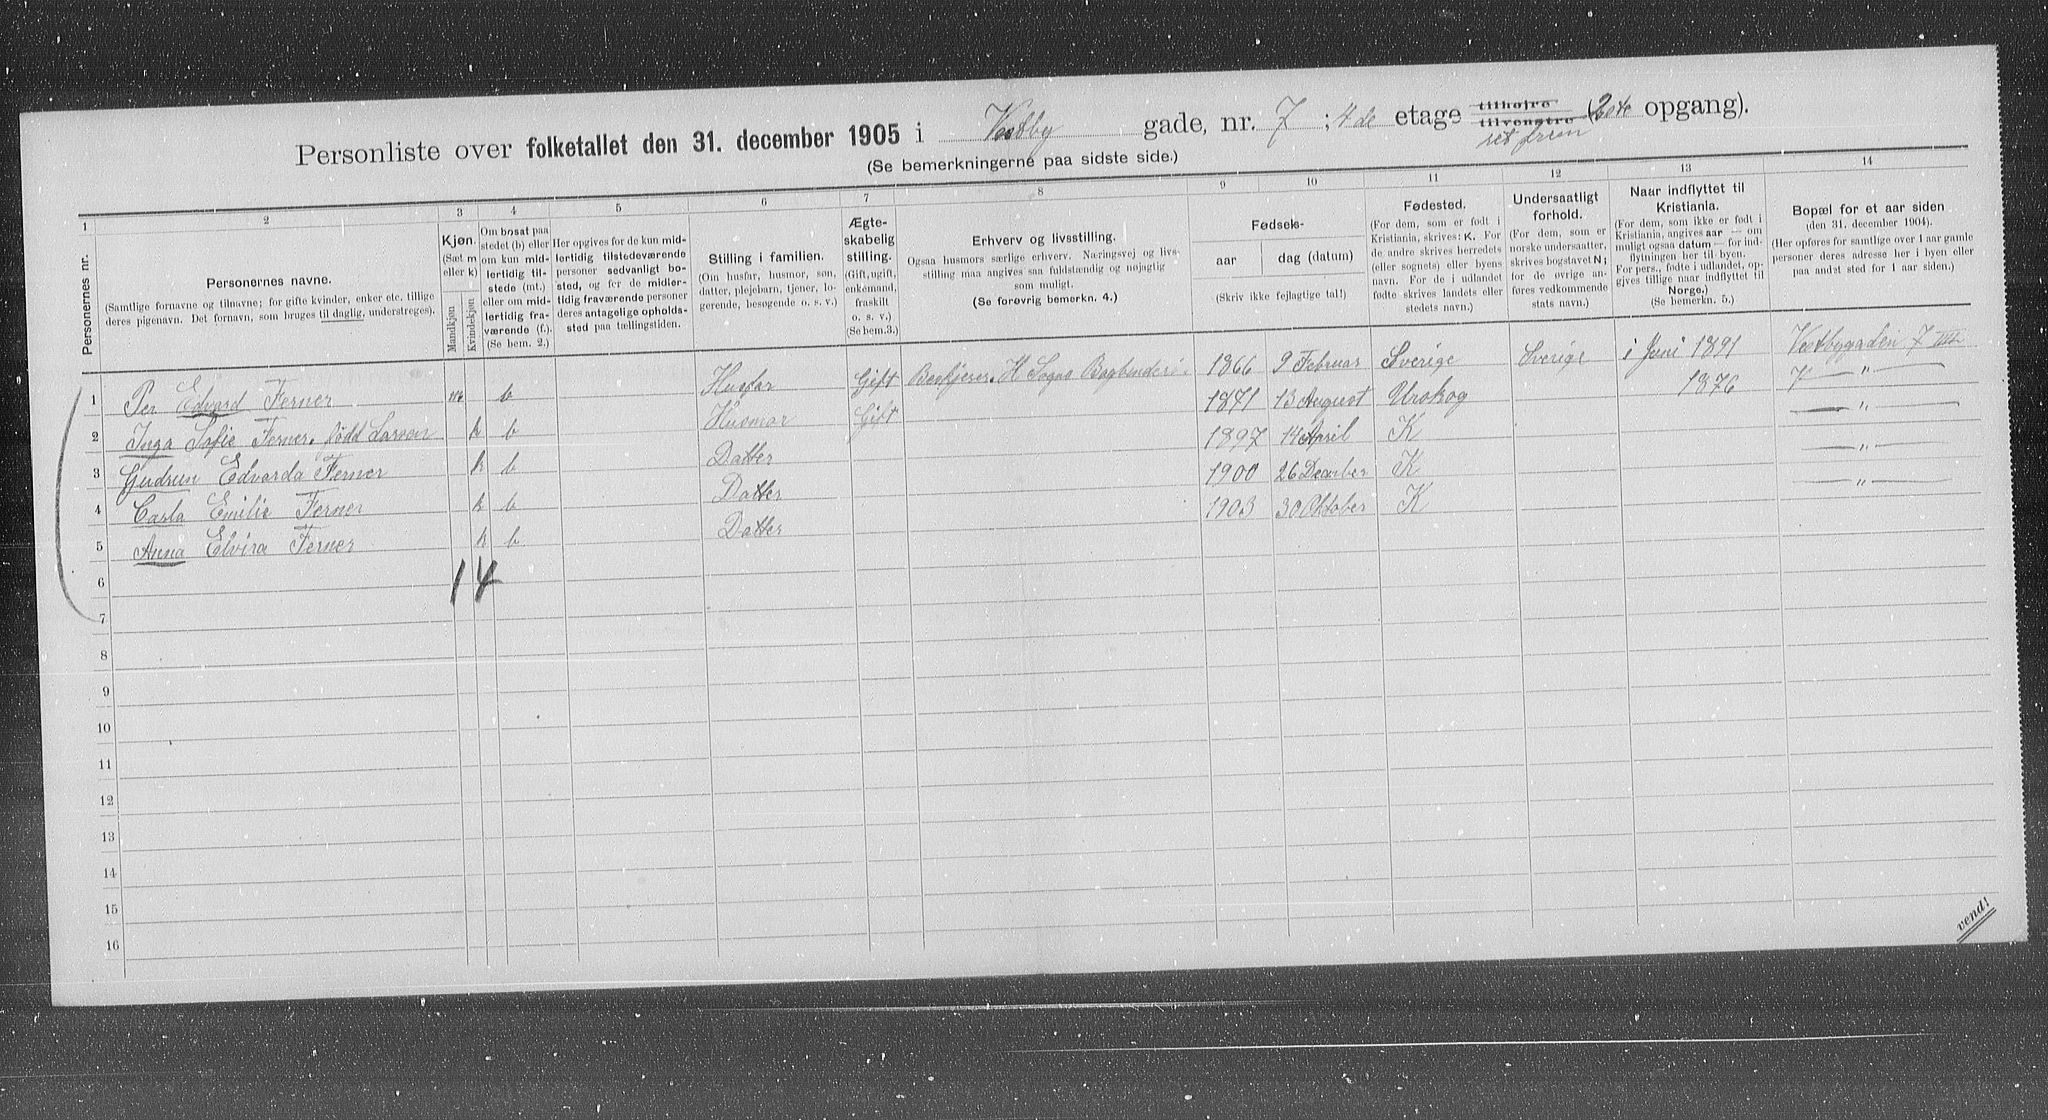 Personliste over folketallet den 31. december 1905 i Vestby gade, nr. 7; 4de etage tilhøjre tilvenstre (2den opgang).
ret frem
(Se bemerkningerne paa sidste side.)
1 2 3 4 5 6 7 8 9 10 11 12 13 14
Personernes nr.
Personernes navne.
(Samtlige fornavne og tilnavne; for gifte kvinder, enker etc. tillige
deres pigenavn. Det fornavn, som bruges til daglig, understreges).
Kjøn.
(Sæt m
eller k)
Mandkjøn
Kvindekjøn
Om bosat paa
stedet (b) eller
om kun mid-
lertidig til-
stede (mt.)
eller om mid-
lertidig fra-
værende (f.).
(Se bem. 2.)
Her opgives for de kun mid-
lertidig tilstedeværende
personer sedvanligt bo-
sted, og for de midler-
tidig fraværende personer
deres antagelige opholds-
sted paa tællingstiden.
Stilling i familien.
(Om husfar, husmor, søn,
datter, plejebarn, tjener, lo-
gerende, besøgende o. s. v.)
Ægte-
skabelig
stilling.
(Gift, ugift,
enkemand,
fraskilt
o. s. v.)
(Se bem.3.)
Erhverv og livsstilling.
Ogsaa husmors særlige erhverv. Næringsvej og livs-
stilling maa angives saa fuldstændig og nøjagtig
som muligt.
(Se forøvrig bemerkn. 4.)
Fødsels-
aar
dag (datum)
(Skriv ikke fejlagtige tal!)
Fødested.
(For dem, som er født i
Kristiania, skrives: K. For
de andre skrives herredets
(eller sognets) eller byens
navn. For de i udlandet
fødte skrives landets eller
stedets navn.)
Undersaatligt
forhold.
(For dem, som er
norske undersaatter,
skrives bogstavet N;
for de øvrige an-
føres vedkommende
stats navn.)
Naar indflyttet til
Kristiania.
(For dem, som ikke er født i
Kristiania, angives aar — om
muligt ogsaa datum — for ind-
flytningen her til byen.
For pers., fødte i udlandet, op-
gives tillige naar indflyttet til
Norge.)
(Se bemerkn. 5.)
Bopæl for et aar siden
(den 31. december 1904).
(Her opføres for samtlige over 1 aar gamle
personer deres adresse her i byen eller
paa andet sted for 1 aar siden.)
1 Per Edvard Ferner m b Husfar Gift Beskjerer. H Sogns Bogbinderi. 1866 9 Februar Sverige Sverige i Juni 1891 Vestbygaden 7
2 Inga Sofie Ferner. född Larsen k b Husmor Gift 1871 13 August Urskog 1876 — „ —
3 Gudrun Edvarda Ferner k b Datter 1897 14 April K — „ —
4 Carla Emilie Ferner k b Datter 1900 26 Desember K — „ —
5 Anna Elvira Ferner k b Datter 1903 30 Oktober K — „ —
6 1 4
7
8
9
10
11
12
13
14
15
16
vend!